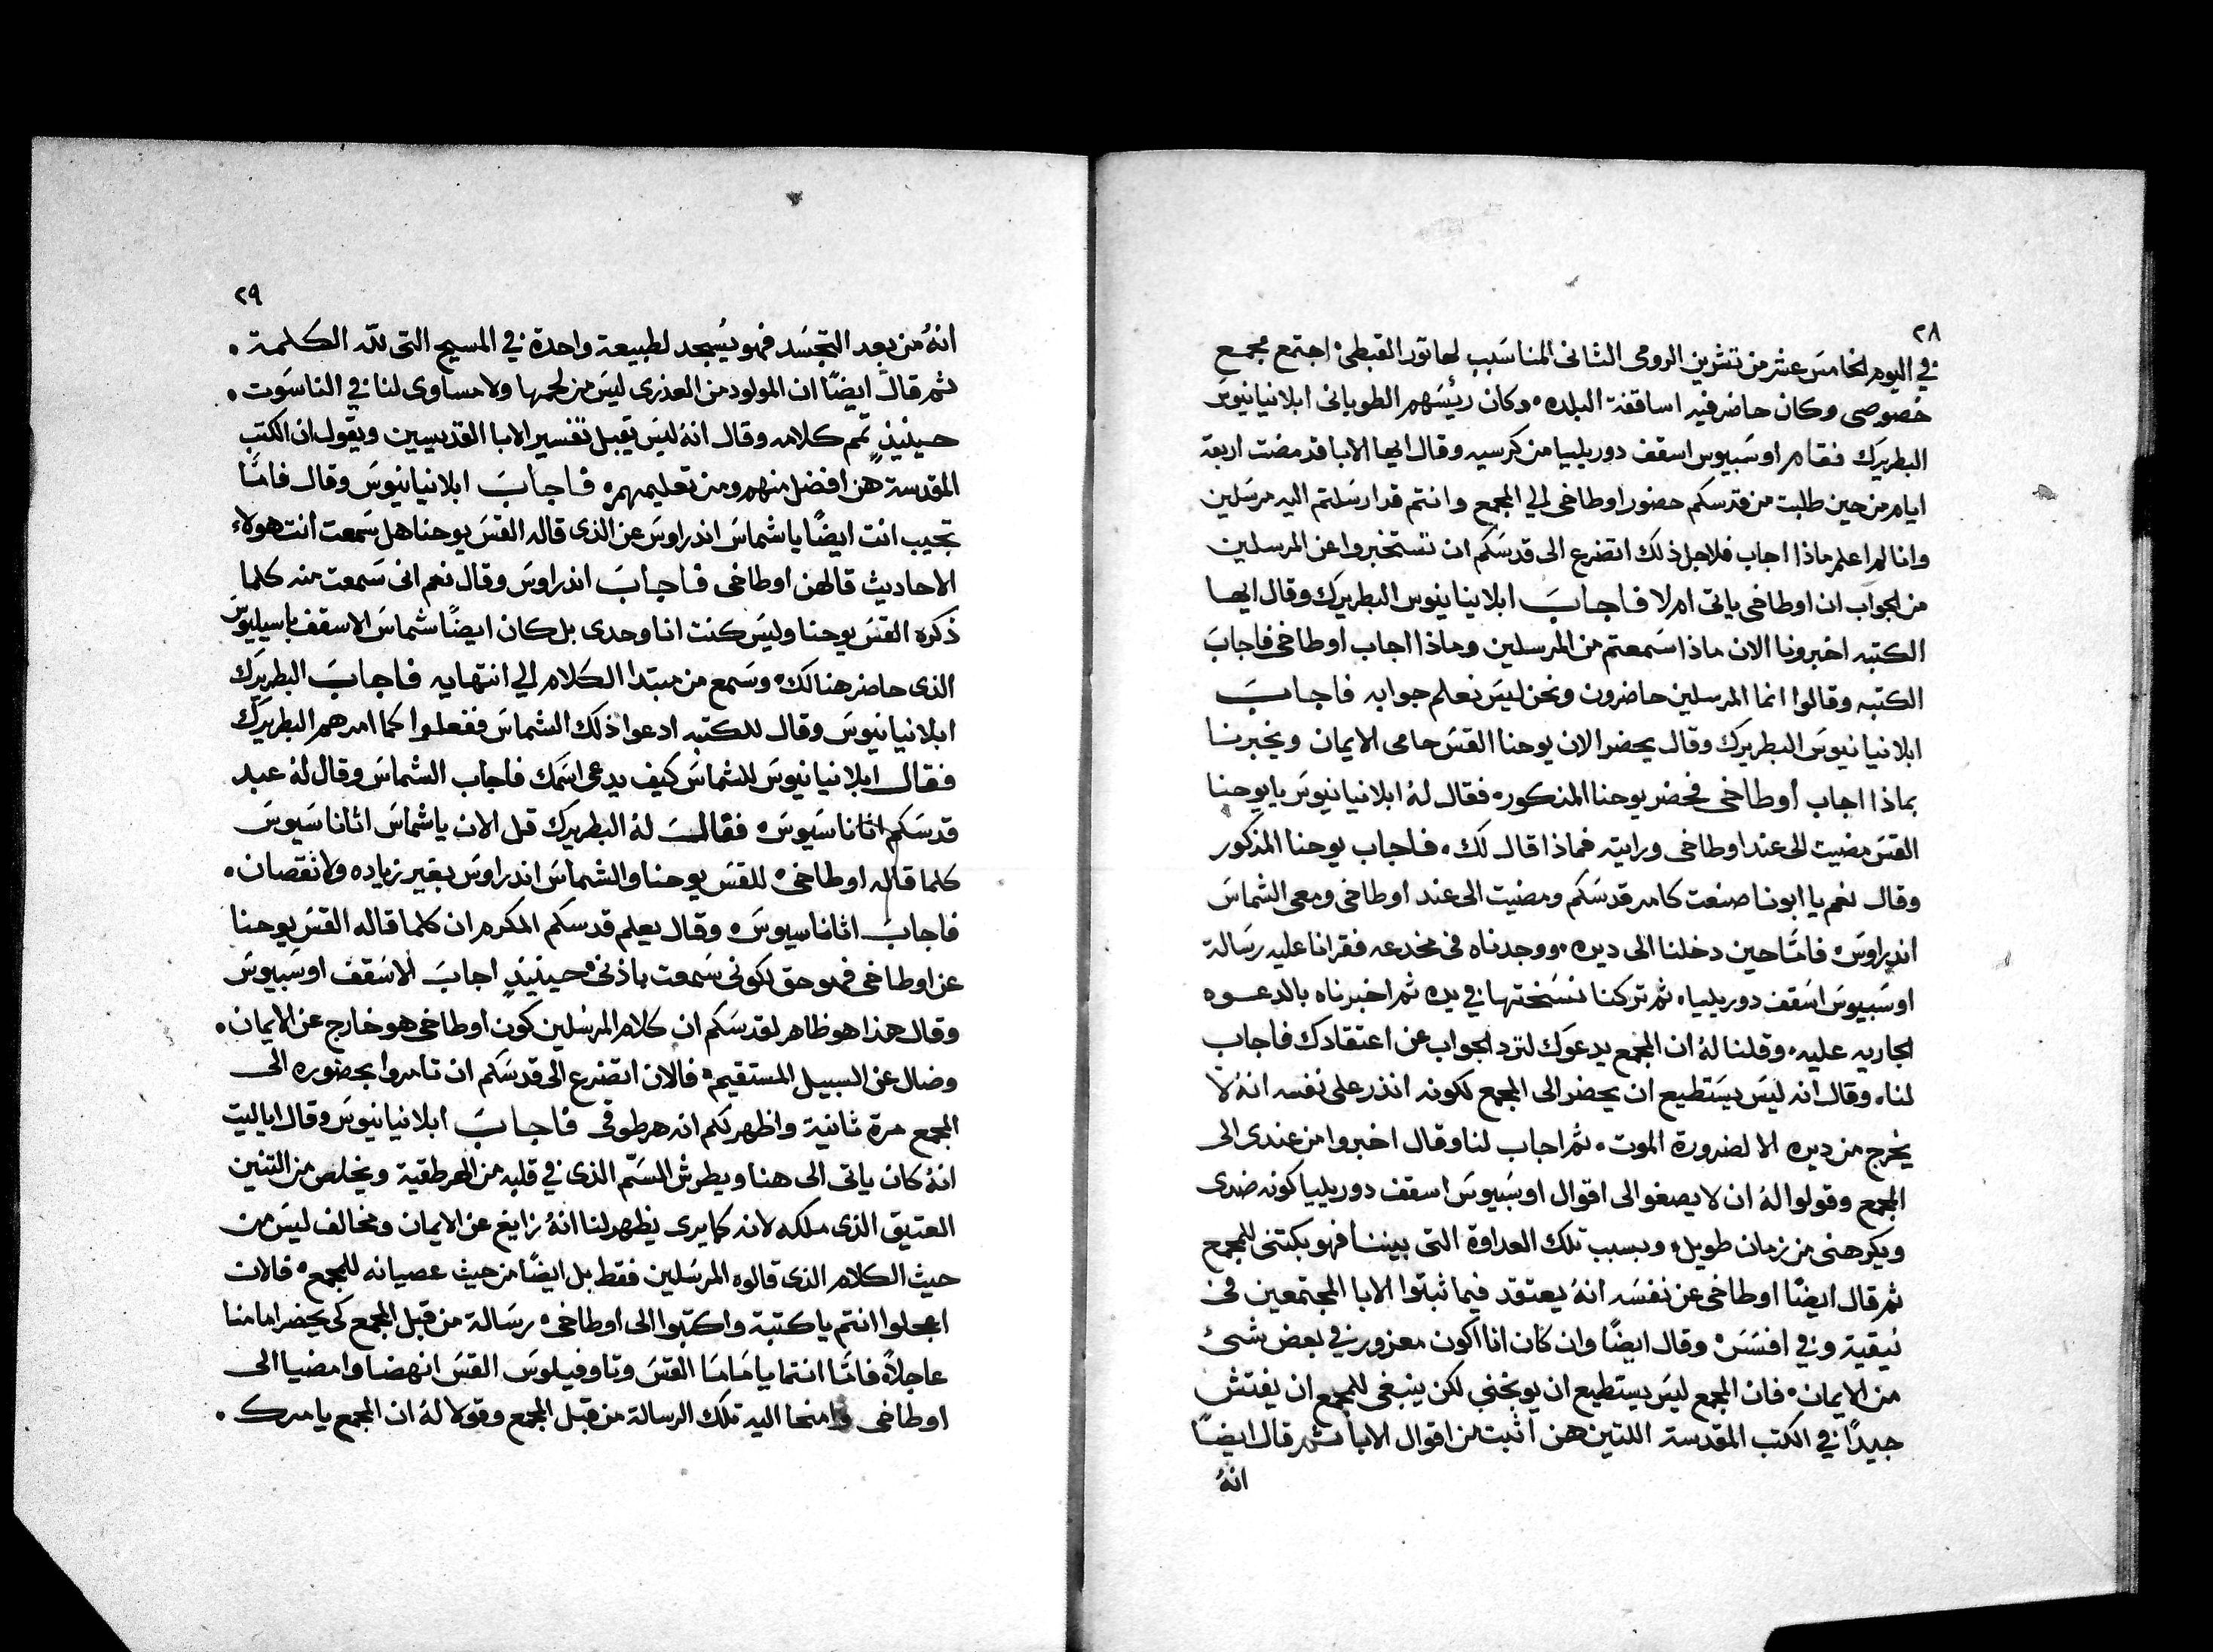 ٢٨
في اليوم الخامس عشر من تشرين الرومى الثانى المناسَب لهاتور القبطى اجتمع مجمع
خصوصى وكان حاضر فيه اساقفة البلده وكان رئيسَهم الطوبانى ابلانيانيوسَ
البطريرك فقام اوسَبيوس اسقف دوريليا من كرسيه وقال ايها الابا قد مضت اربعة
ايام من حين طلبت من قدسكم حضور اوطاخى الي المجمع وانتم قد ارسَلتم اليه مرسَلين
وانا لم اعلم ماذا اجاب فلاجل ذلك اتضرع الى قدسَكم ان تستخبروا عن المرسلين
من الجواب ان اوطاخى ياتى ام لا فاجابَ ابلانيانيوس البطريرك وقال ايها
الكتبه اخبرونا الان ماذا سَمعتم من المرسلين وماذا اجاب اوطاخى فاجابَ
الكتبه وقالوا انما المرسلين حاضرون ونحن ليسَ نعلم جوابه فاجابَ
ابلانيانيوسَ البطريرك وقال يحضر الان يوحنا القسَ حامى الايمان ويخبرنا
بماذا اجاب اوطاخى فحضر يوحنا المذكور فقال لهُ ابلانيانيوسَ يا يوحنا
القسَ مضيت الى عند اوطاخى ورايته فماذا قال لك. فاجاب يوحنا المذكور
وقال نعم يا ابونا صنعت كامر قدسَكم ومضيت الى عند اوطاخى ومعى الشماسَ
اندراوسَ فامَّا حين دخلنا الى ديره ووجدناه فى مخدعه فقرانا عليه رسَالة
اوسَبيوسَ اسَقف دوريليا ثم تركنا نسَختها في يده ثم اخبرناه بالدعوه
الجاريه عليه وقلنا لهُ ان المجمع يدعوَك لترد الجواب عن اعتقادك فاجاب
لنا وقال انه ليسَ يسَتطيع ان يحضر الى المجمع لكونه انذر على نفسه انهُ لا
يخرج من ديره الا لضرورة الموت. ثم اجاب لنا وقال اخبروا من عندى الى
المجمع وقولوا لهُ ان لا يصغوا الى اقوال اوسَبيوسَ اسقف دوريليا كونه ضدى
ويكرهنى من زمان طويل وبسبب تلك العداوة التى بيننا فهو يكتنى للمجمع
ثم قال ايضًا اوطاخى عن نفسَه انهُ يعتقد فيما ثبتوا الابا المجتمعين فى
نيقية وفي افسَسَ وقال ايضًا وان كان انا اكون معزور في بعض شئ
من الايمان فان المجمع ليسَ يستطيع ان يوبخني لكن ينبغى للمجمع ان يفتش
جيدًا في الكتب المقدسة اللتين هن اثبت من اقوال الابا ثم قال ايضًا
انهُ
٢٩
انهُ من بعد التجسَد فهو يسُجد لطبيعة واحدة في المسيح التى لله الكلمة.
ثم قال ايضًا ان المولود من العذرى ليسَ من لحمها ولا مساوى لنا في الناسَوت.
حينيذٍ تمم كلامه وقال انهُ ليسَ يقبل تفسير الابا القديسيين ويقول ان الكتب
المقدسة هن افضل منهم ومن تعليمهم فاجابَ ابلانيانيوسَ وقال فامَّا
تجيب انت ايضًا يا شماسَ اندراوسَ عن الذى قاله القسَ يوحنا هل سَمعت انت هولاء
الاحاديث قالهن اوطاخى فاجابَ اندراوسَ وقال نعم انى سَمعت منه كلما
ذكره القسَ يوحنا وليسَ كنت انا وحدى بل كان ايضًا شماسَ الاسقف باسيليوسَ
الذى حاضر هنالك وسَمع من مبتدا الكلام الي انتهايه فاجابَ البطريرَك
ابلانيانيوسَ وقال للكتبه ادعوا ذلك الشماسَ ففعلوا كما امرهم البطريرَك
فقال ابلانيانيوسَ للشماسَ كيف يدعى اسَمك فاجاب الشماسَ وقال لهُ عبد
قدسَكم اثاناسَيوسَ فقال لهُ البطريرك قل الان يا شماسَ اثاناسَيوسَ
كلما قاله اوطاخى للقسَ يوحنا والشماسَ اندراوسَ بغير زياده ولا نقصان.
فاجابَ اثاناسيوسَ وقال يعلم قدسكم المكرم ان كلما قاله القسَ يوحنا
عن اوطاخى فهو حق لكونى سَمعت باذنى حينيذٍ اجابَ الاسَقف اوسَبيوسَ
وقال هذا هو ظاهر لقدسَكم ان كلام المرسَلين كون اوطاخى هو خارج عن الايمان.
وضال عن السبيل المستقيم فالان اتضرع الى قدسَكم ان تامروا بحضوره الى
المجمع مرة ثانية واظهر لكم انه هرطوقى فاجابَ ابلانيانيوسَ وقال اياليت
انهُ كان ياتى الى هنا ويطرش السَمّ الذى في قلبه من الهرطقية ويخلص من التنين
العتيق الذى ملكه لانه كما يرى يظهر لنا انهُ زايغ عن الايمان ومخالف ليسَ من
حيث الكلام الذى قالوه المرسَلين فقط بل ايضًا من حيث عصيانه للمجمع فالان
اعجلوا انتم يا كتبة واكتبوا الى اوطاخى رسَالة من قبل المجمع كى يحضر امامنا
عاجلاً فامَّا انتما يا مَامَا القسَ وتاوفيلوسَ القسَ انهضا وامضيا الى
اوطاخى وامنحا اليه تلك الرسالة من قبل المجمع وقولا لهُ ان المجمع يامرك.